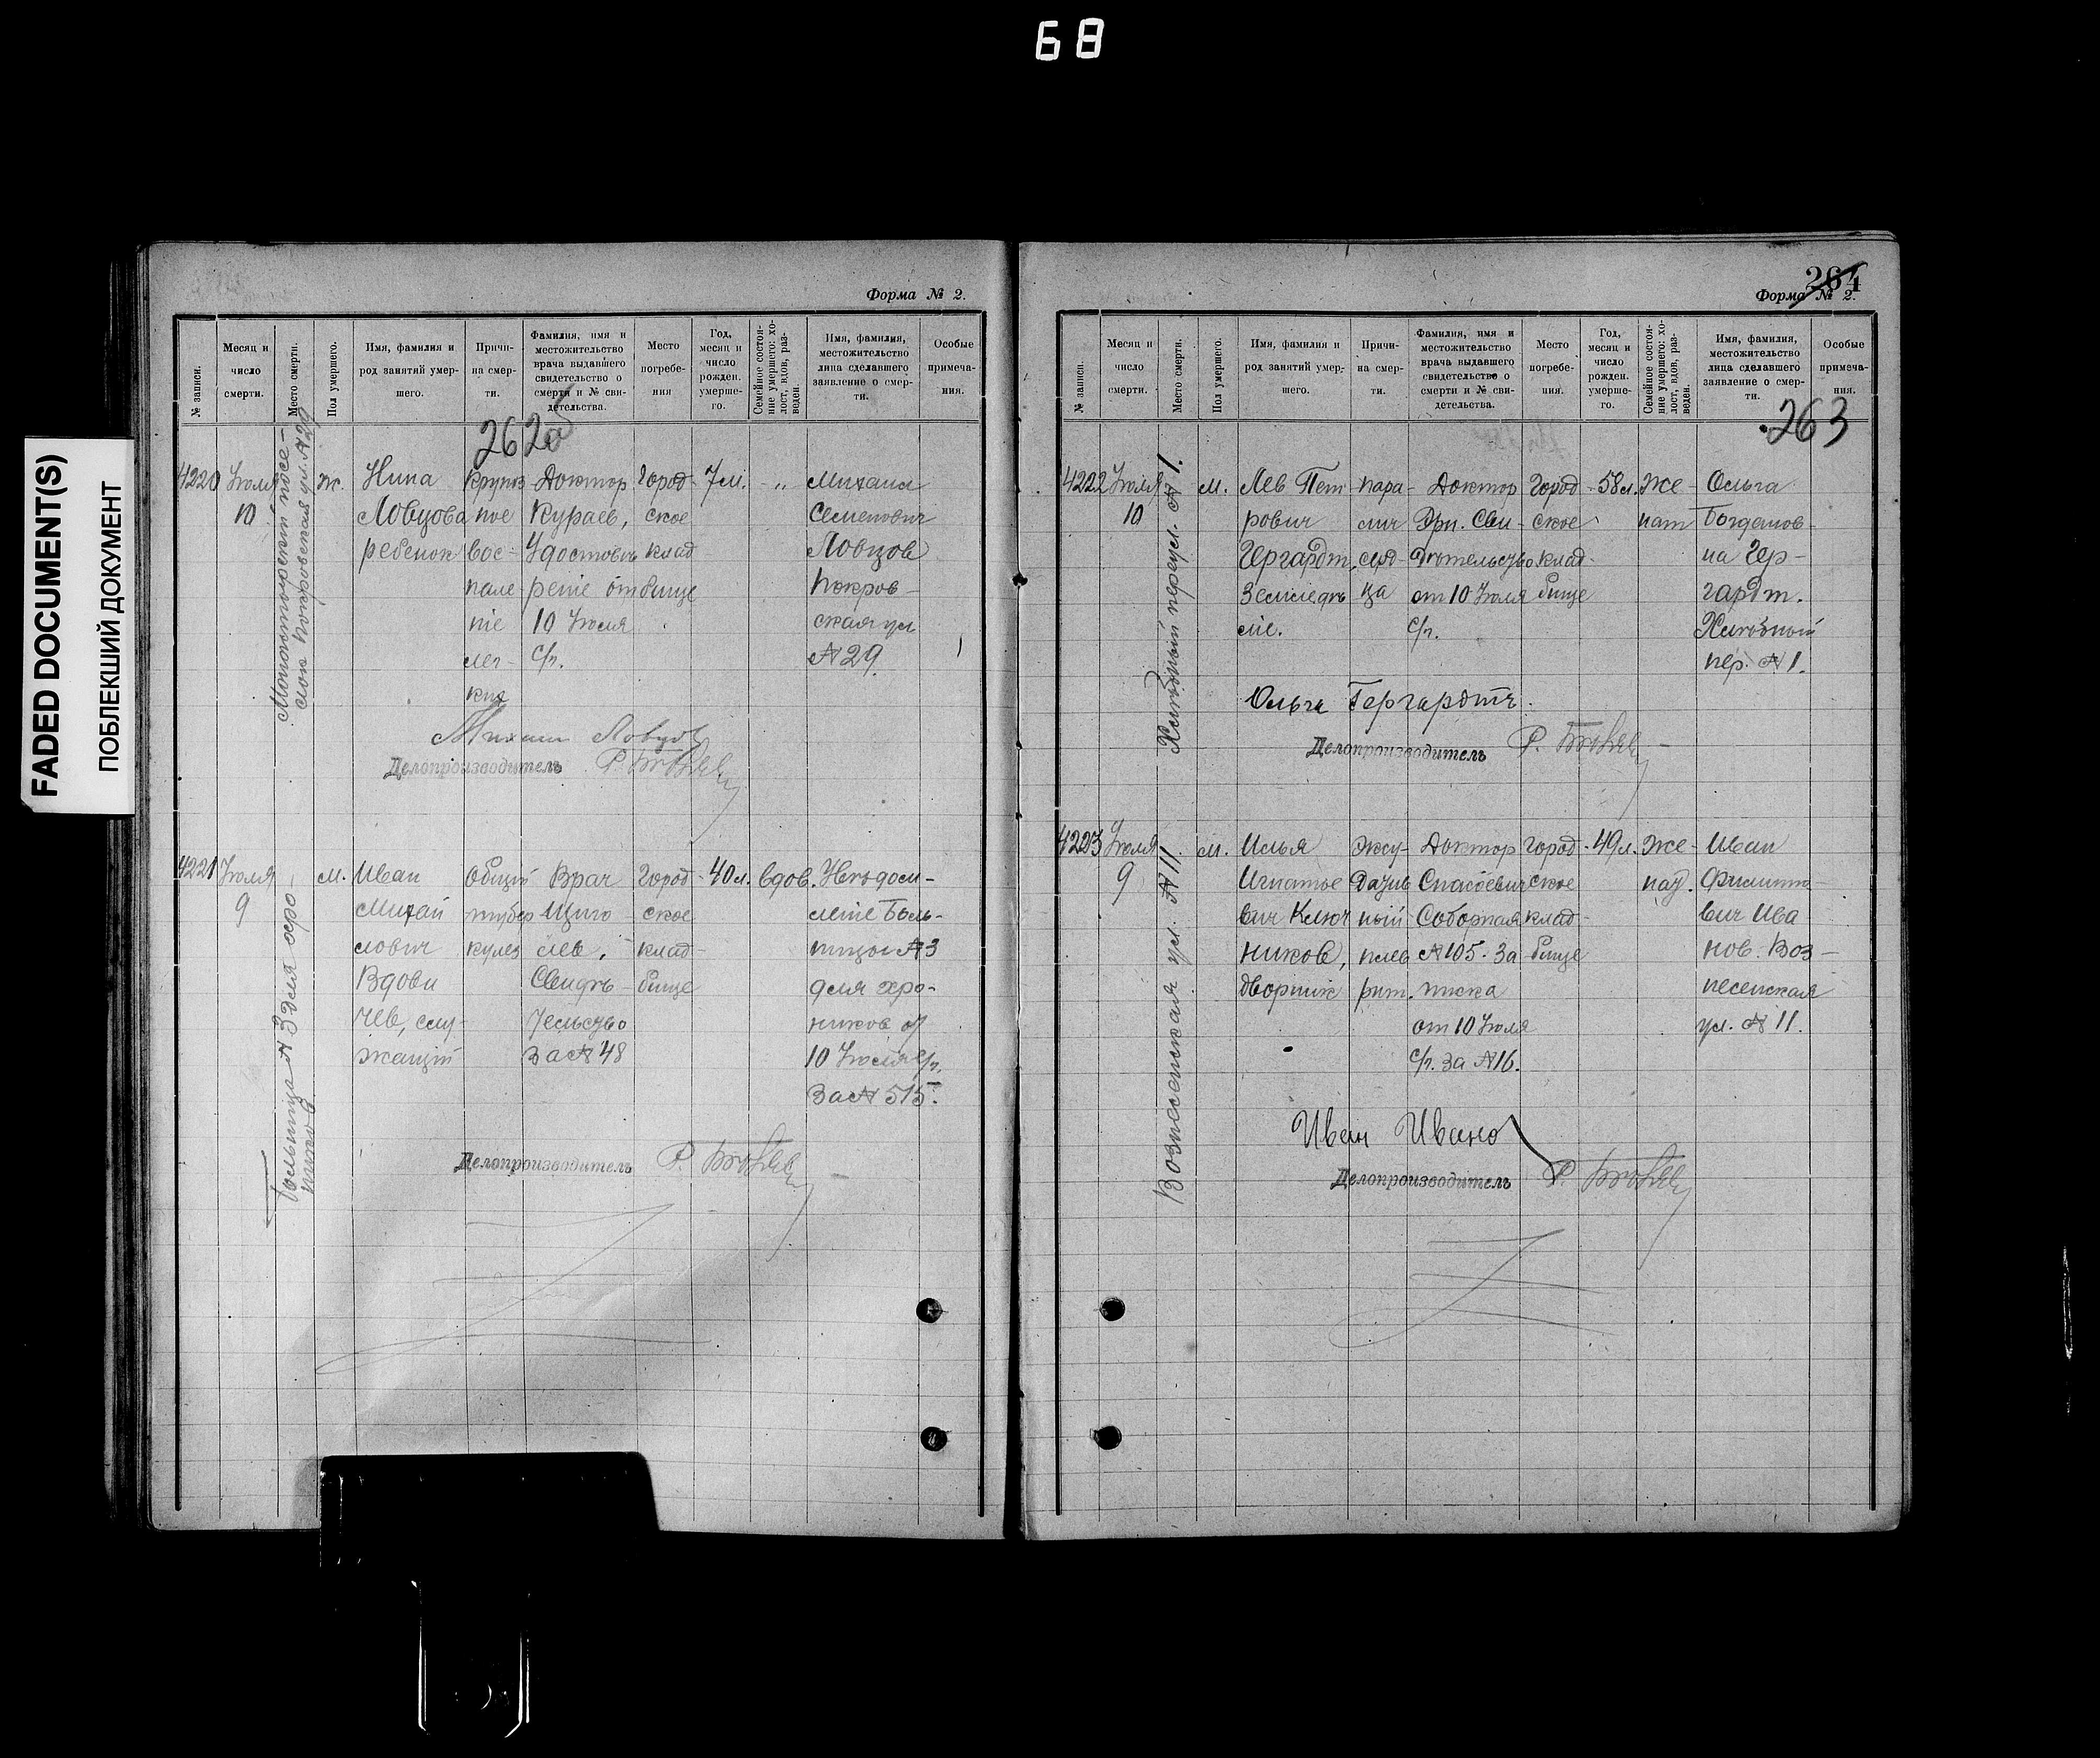 68
FADED DOCUMENT(S)
ПОБЛЕКШИЙ ДОКУМЕНТ
Форма № 2.
№ записи.
Месяц и
число
смерти.
Место смерти.
Пол умершего.
Имя, фамилия и
род занятий умер-
шего.
Причи-
на смер-
ти.
Фамилия, имя и
местожительство
врача выдавшего
свидетельство о
смерти и № сви-
детельства.
Место
погребе-
ния
Год,
месяц и
число
рожден.
умерше-
го.
Семейное состоя-
ние умершего: хо-
лост, вдов, раз-
веден.
Имя, фамилия,
местожительство
лица сделавшего
заявление о смер-
ти.
Особые
примеча-
ния.
262
4220
Июля
10
слок Покровская ул. № 29
ж.
Нина
Ловцова
ребенок
крупоз
ное
вос-
пале
ніе
лег-
ких
Доктор
Кураев,
Удостовѣ
реніе от
10 Июля
с/г.
Город-
ское
клад-
бище
7 м.
"
Михаил
Семенович
Ловцов
Покров-
ская ул
№ 29
Михаил Ловцов
Делопроизводитель
4221
Июля
9
Больница № 3 для хро-
ников
м.
Иван
Михай
лович
Вдови
чев, слу-
жащій
Общій
тубер
кулез
Врач
Щиго
лев,
Свидѣ-
тельство
за № 48
Город-
ское
клад-
бище
40 л.
вдов.
Увѣдом-
леніе Боль-
ницы № 3
для хро-
ников от
10 Июля с/г.
за № 515.
Делопроизводитель
264
Форма № 2.
№ записи.
Месяц и
число
смерти.
Место смерти.
Пол умершего.
Имя, фамилия и
род занятий умер-
шего.
Причи-
на смер-
ти.
Фамилия, имя и
местожительство
врача выдавшего
свидетельство о
смерти и № сви-
детельства.
Место
погребе-
ния.
Год,
месяц и
число
рожден.
умерше-
го.
Семейное состоя-
ние умершего: хо-
лост, вдов, раз-
веден.
Имя, фамилия,
местожительство
лица сделавшего
заявление о смер-
ти.
Особые
примеча-
ния.
263
4222
Июля
10
Хлѣбный переул. № 1.
м.
Лев Пет
рович
Гергардт,
Земледѣ
ліе.
пара-
лич
серд-
ца
Доктор
Эрн. Сви-
дѣтельство
от 10 Июля
с/г.
Город-
ское
клад-
бище
58 л.
Же-
нат
Ольга
Богданов-
на Гер-
гардт.
Хлѣбный
пер. № 1.
Ольга Гергардтъ.
Делопроизводитель
4223
Июля
9
Вознесенская ул. № 11
м.
Илья
Игнатье
вич Ключ
ников,
дворник
эксу-
датив
ный
плев
рит.
Доктор
Спасоевич
Соборная
№ 105. За-
писка
от 10 Июля
с/г. за № 16.
Город-
ское
клад-
бище
49 л.
Же-
нат.
Иван
Филиппо-
вич Ива
нов. Воз-
несенская
ул. № 11.
Иван Иванов
Делопроизводитель